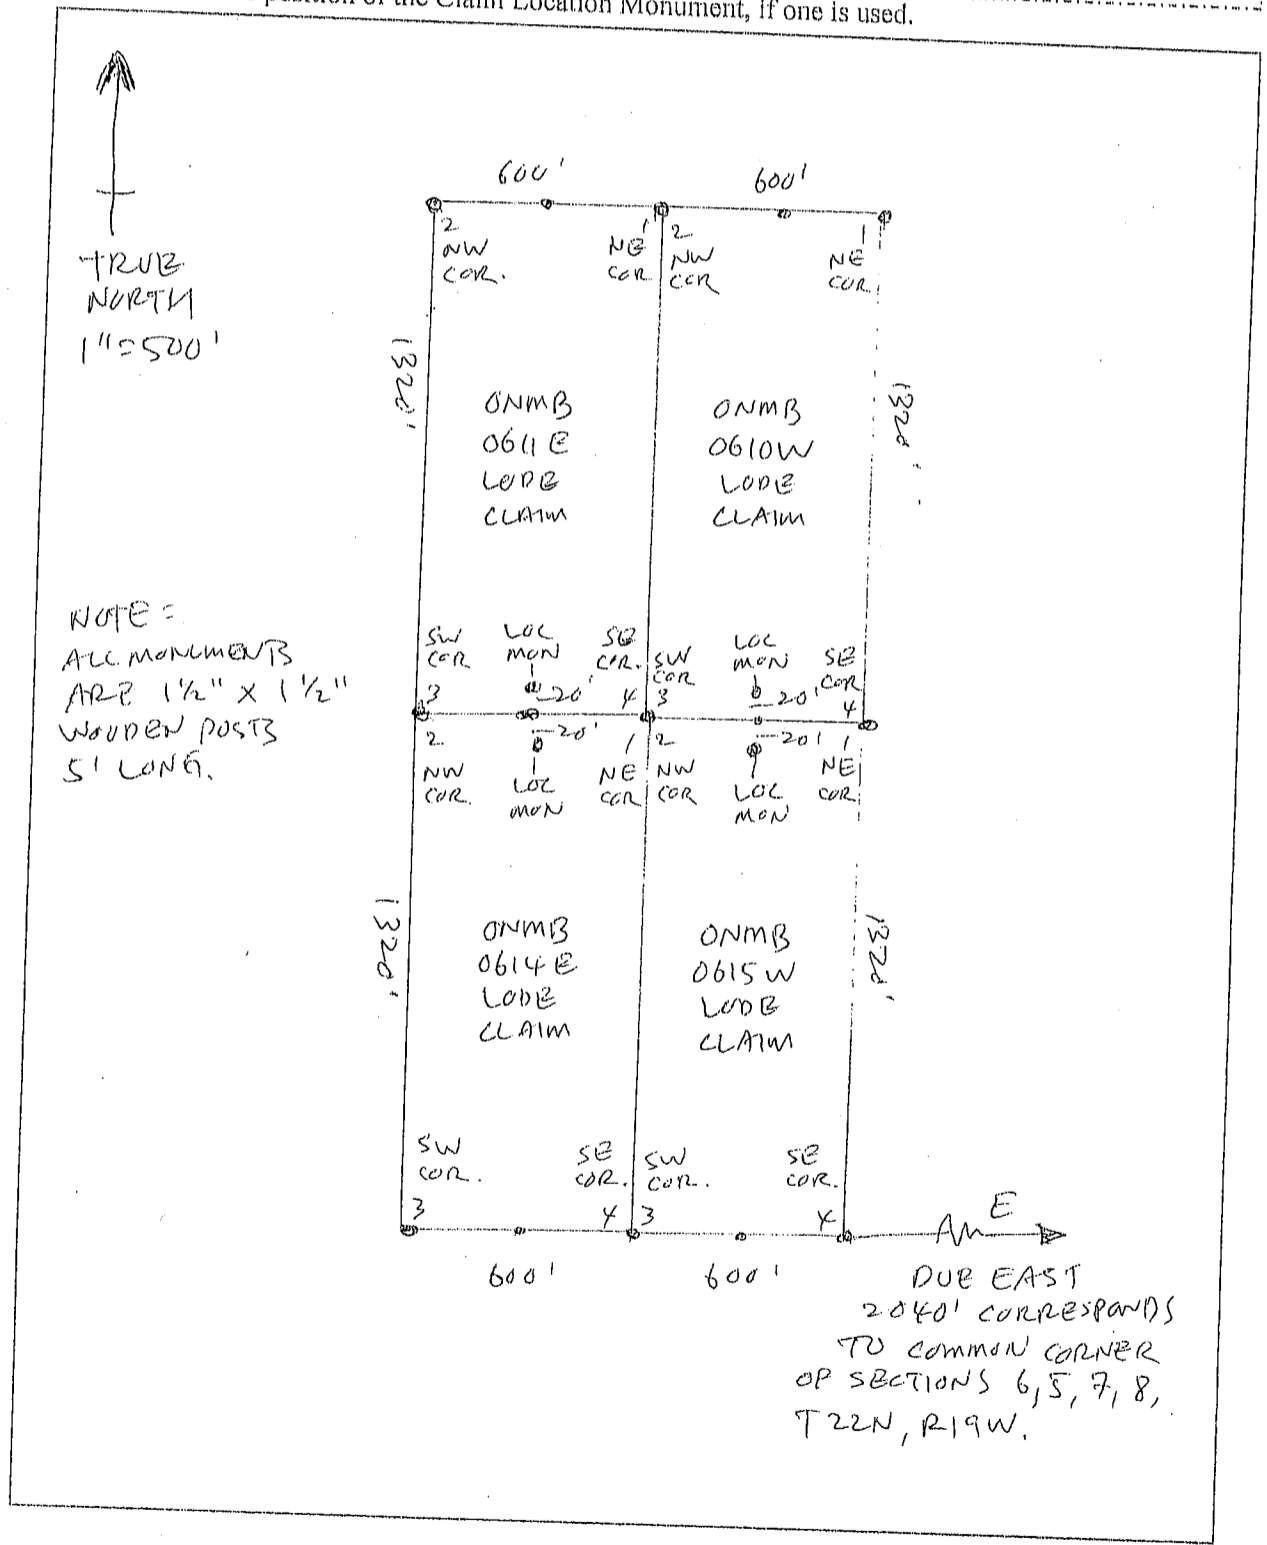 position of the Claim Location Monument, if one is used.
TRUE
NORTH
1"=500'
600'
600'
2
NW
COR.
1
NE
COR
2
NW
COR
1
NE
COR.
1320'
1320'
ONMB
0611E
LODE
CLAIM
ONMB
0610W
LODE
CLAIM
NOTE =
ALL MONUMENTS
ARE 1½" X 1½"
WOODEN POSTS
5' LONG.
SW
COR
3
LOC
MON
20'
SE
COR.
4
SW
COR
3
LOC
MON
20'
SE
COR
4
2
NW
COR.
20'
LOC
MON
1
NE
COR
2
NW
COR
20'
LOC
MON
1
NE
COR.
1320'
1320'
ONMB
0614E
LODE
CLAIM
ONMB
0615W
LODE
CLAIM
SW
COR.
3
SE
COR.
4
SW
COR.
3
SE
COR.
4
600'
600'
E
DUE EAST
2040' CORRESPONDS
TO COMMON CORNER
OF SECTIONS 6, 5, 7, 8,
T22N, R19W.